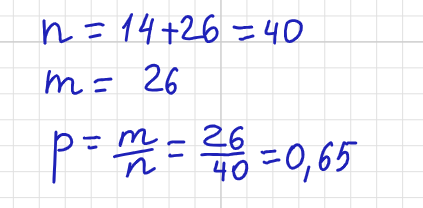 n = 14+26 = 40
m = 26
p = m/n = 26/40 = 0,65